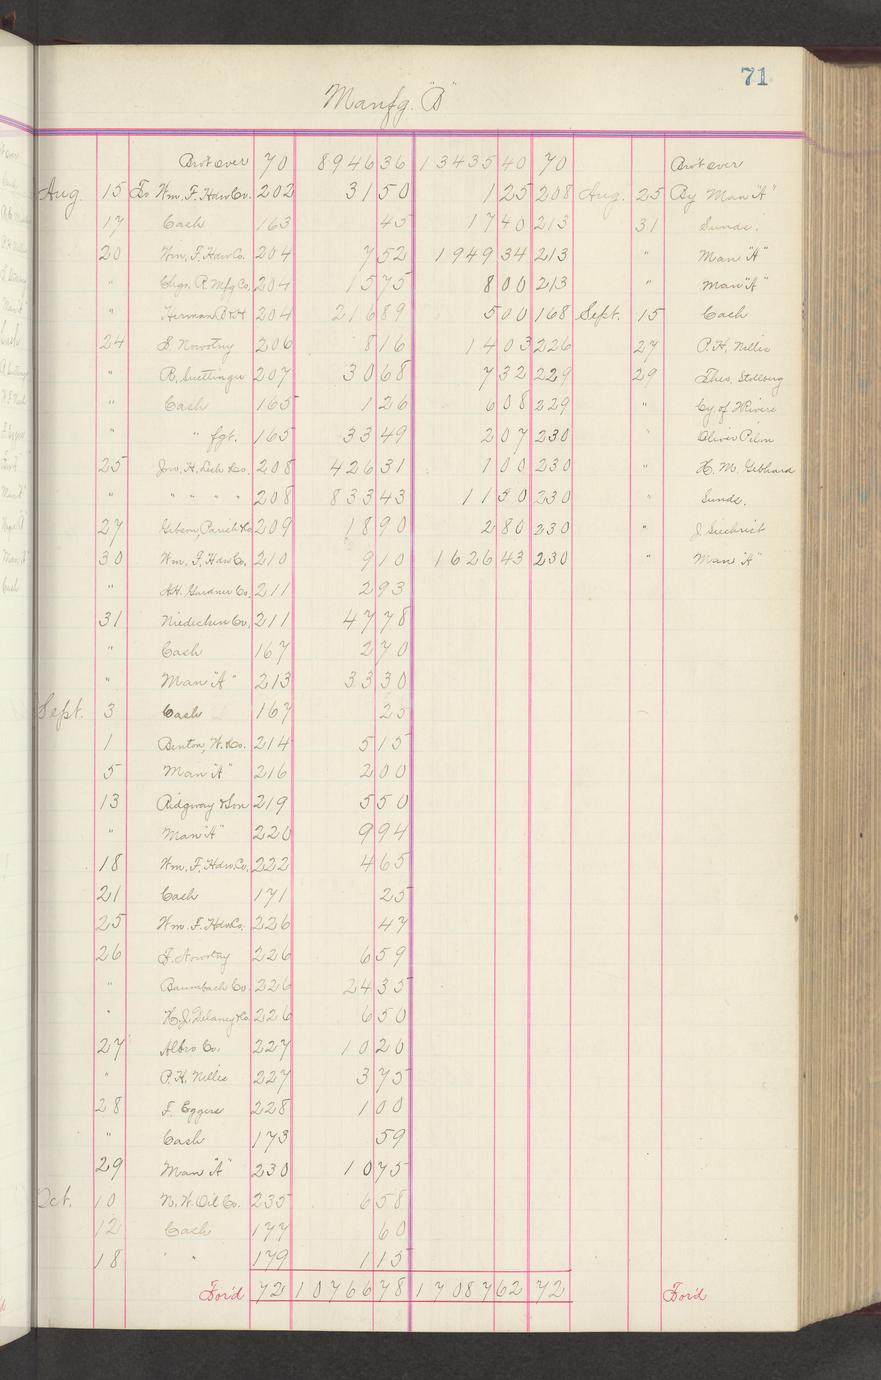 71
Manfg. "B"
Bro't over 70 8946 36 13435 40 70 Bro't over
Aug. 15 To Wm. F. Hdw Co. 202 31 50 1 25 208 Aug. 25 By Man "A"
17 Cash 163 45 17 40 213 31 Sunds.
20 Wm. F. Hdw Co. 204 7 52 1949 34 213 " Man "A"
" Chgo. R. Mfg Co. 204 15 75 8 00 213 " Man "A"
" Herman B & H 204 216 89 5 00 168 Sept. 15 Cash
24 S. Nowotny 206 8 16 14 03 226 27 P. H. Nillis
" R. Suettinger 207 30 68 7 32 229 29 Theo. Stolberg
" Cash 165 1 26 6 08 229 " Cy. of 2 Rivers
" " fgt. 165 33 49 2 07 230 " Oliver Pilon
25 Jno. H. Lesh & Co. 208 426 31 1 00 230 " H. M. Gebhard
" " " " " 208 833 43 11 30 230 " Sunds.
27 Gibson, Parish & Co 209 18 90 2 80 230 " J. Siechrist
30 Wm. F. Hdw Co. 210 9 10 1626 43 230 " Man "A"
" A.H. Gardner Co. 211 2 93
31 Niedecken Co. 211 47 78
" Cash 167 2 70
" Man "A" 213 33 30
Sept. 3 Cash 167 25
1 Benton, W. & Co. 214 5 15
5 Man "A" 216 2 00
13 Ridgway & Son 219 5 50
" Man "A" 220 9 94
18 Wm. F. Hdw. Co. 222 4 65
21 Cash 171 25
25 Wm. F. Hdw Co. 226 47
26 S. Nowotny 226 6 59
" Baumbach Co. 226 24 35
" H. J. Delaney & Co. 226 6 50
27 Albro Co. 227 10 20
" P. H. Nillis 227 3 75
28 F. Eggers 228 1 00
" Cash 173 59
29 Man "A" 230 10 75
Oct. 10 N. W. Oil Co. 235 6 58
12 Cash 177 60
18 " 179 1 15
For'd 72 10766 78 17087 62 72 For'd